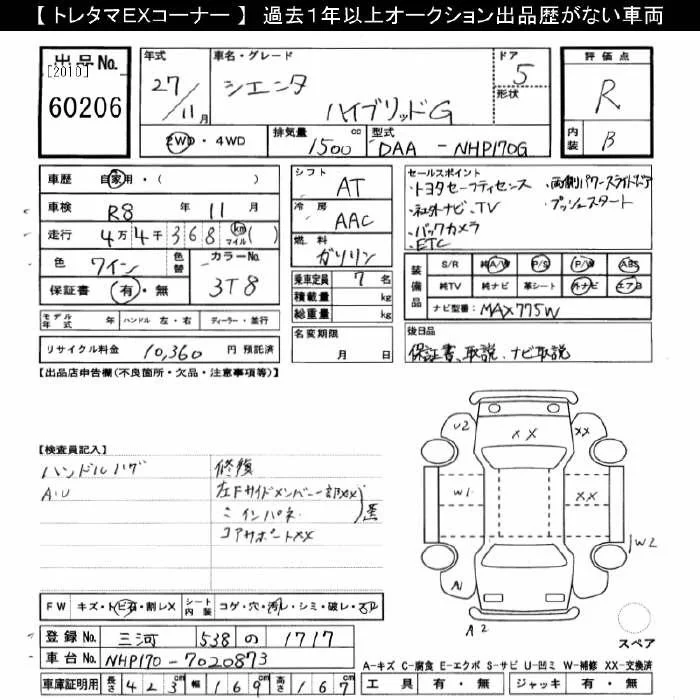 【 トレタマEXコーナー 】 過去１年以上オークション出品歴がない車両
出品No.
[2010]
60206
年式
27/11月
車名・グレード
シエンタ
ハイブリッドG
ドア
5
形状
評価点
R
内装
B
2WD・4WD
排気量
1500 cc
型式
DAA - NHP170G
車歴 自家用・( )
車検 R8 年 11 月
走行 4万4千368 km マイル ( )
色 ワイン
色替
カラーNo.
3T8
保証書 有・無
モデル年式 年 ハンドル 左・右 ディーラー・並行
リサイクル料金 10,360 円 預託済
シフト
AT
冷房
AAC
燃料
ガソリン
乗車定員 7 名
積載量 kg
総重量 kg
名変期限
月 日
セールスポイント
・トヨタセーフティセンス ・両側パワースライドドア
・社外ナビ、TV ・プッシュスタート
・バックカメラ
・ETC
装備品
S/R 純A/W P/S P/W ABS
純TV 純ナビ 革シート 外ナビ エアB
ナビ型番: MAX775W
後日品
保証書、取説、ナビ取説
【出品店申告欄(不良箇所・欠品・注意事項等)】
【検査員記入】
ハンドルハゲ
A・U
修復
左Fサイドメンバー一部XX
〃 インパネ
コアサポートXX
U2
XX
XX
W1
XX
W2
A1
A2
スペア
FW キズ・トビ石・割レX
シート内装 コゲ・穴・汚レ・シミ・破レ・
登録No. 三河 538 の 1717
車台No. NHP170-7020873
車庫証明用 長さ 423cm 幅 169cm 高さ 167cm
A-キズ C-腐食 E-エクボ S-サビ U-凹ミ W-補修 XX-交換済
工具 有・無 ジャッキ 有・無